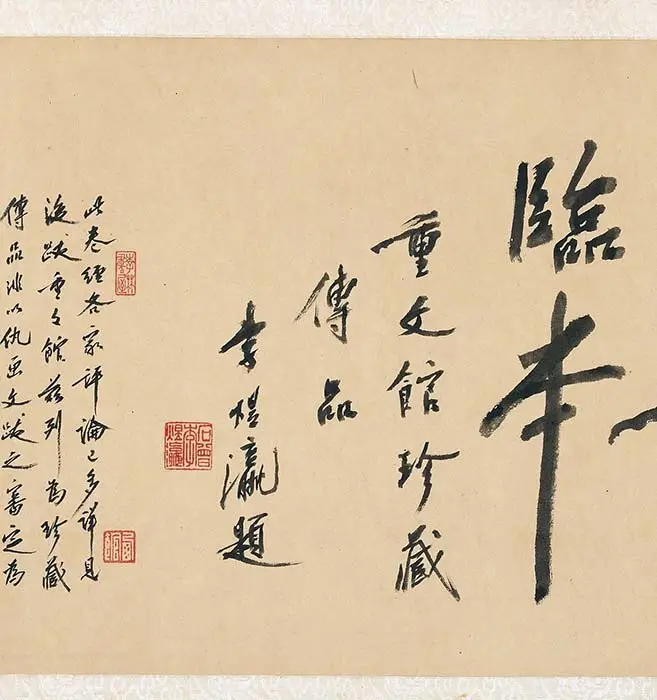 臨本
重文館珍藏
傳品
李煜瀛題
此卷經各家評論已多詳見
後跋重文館茲列為珍藏
傳品非以仇画文跋之審定為